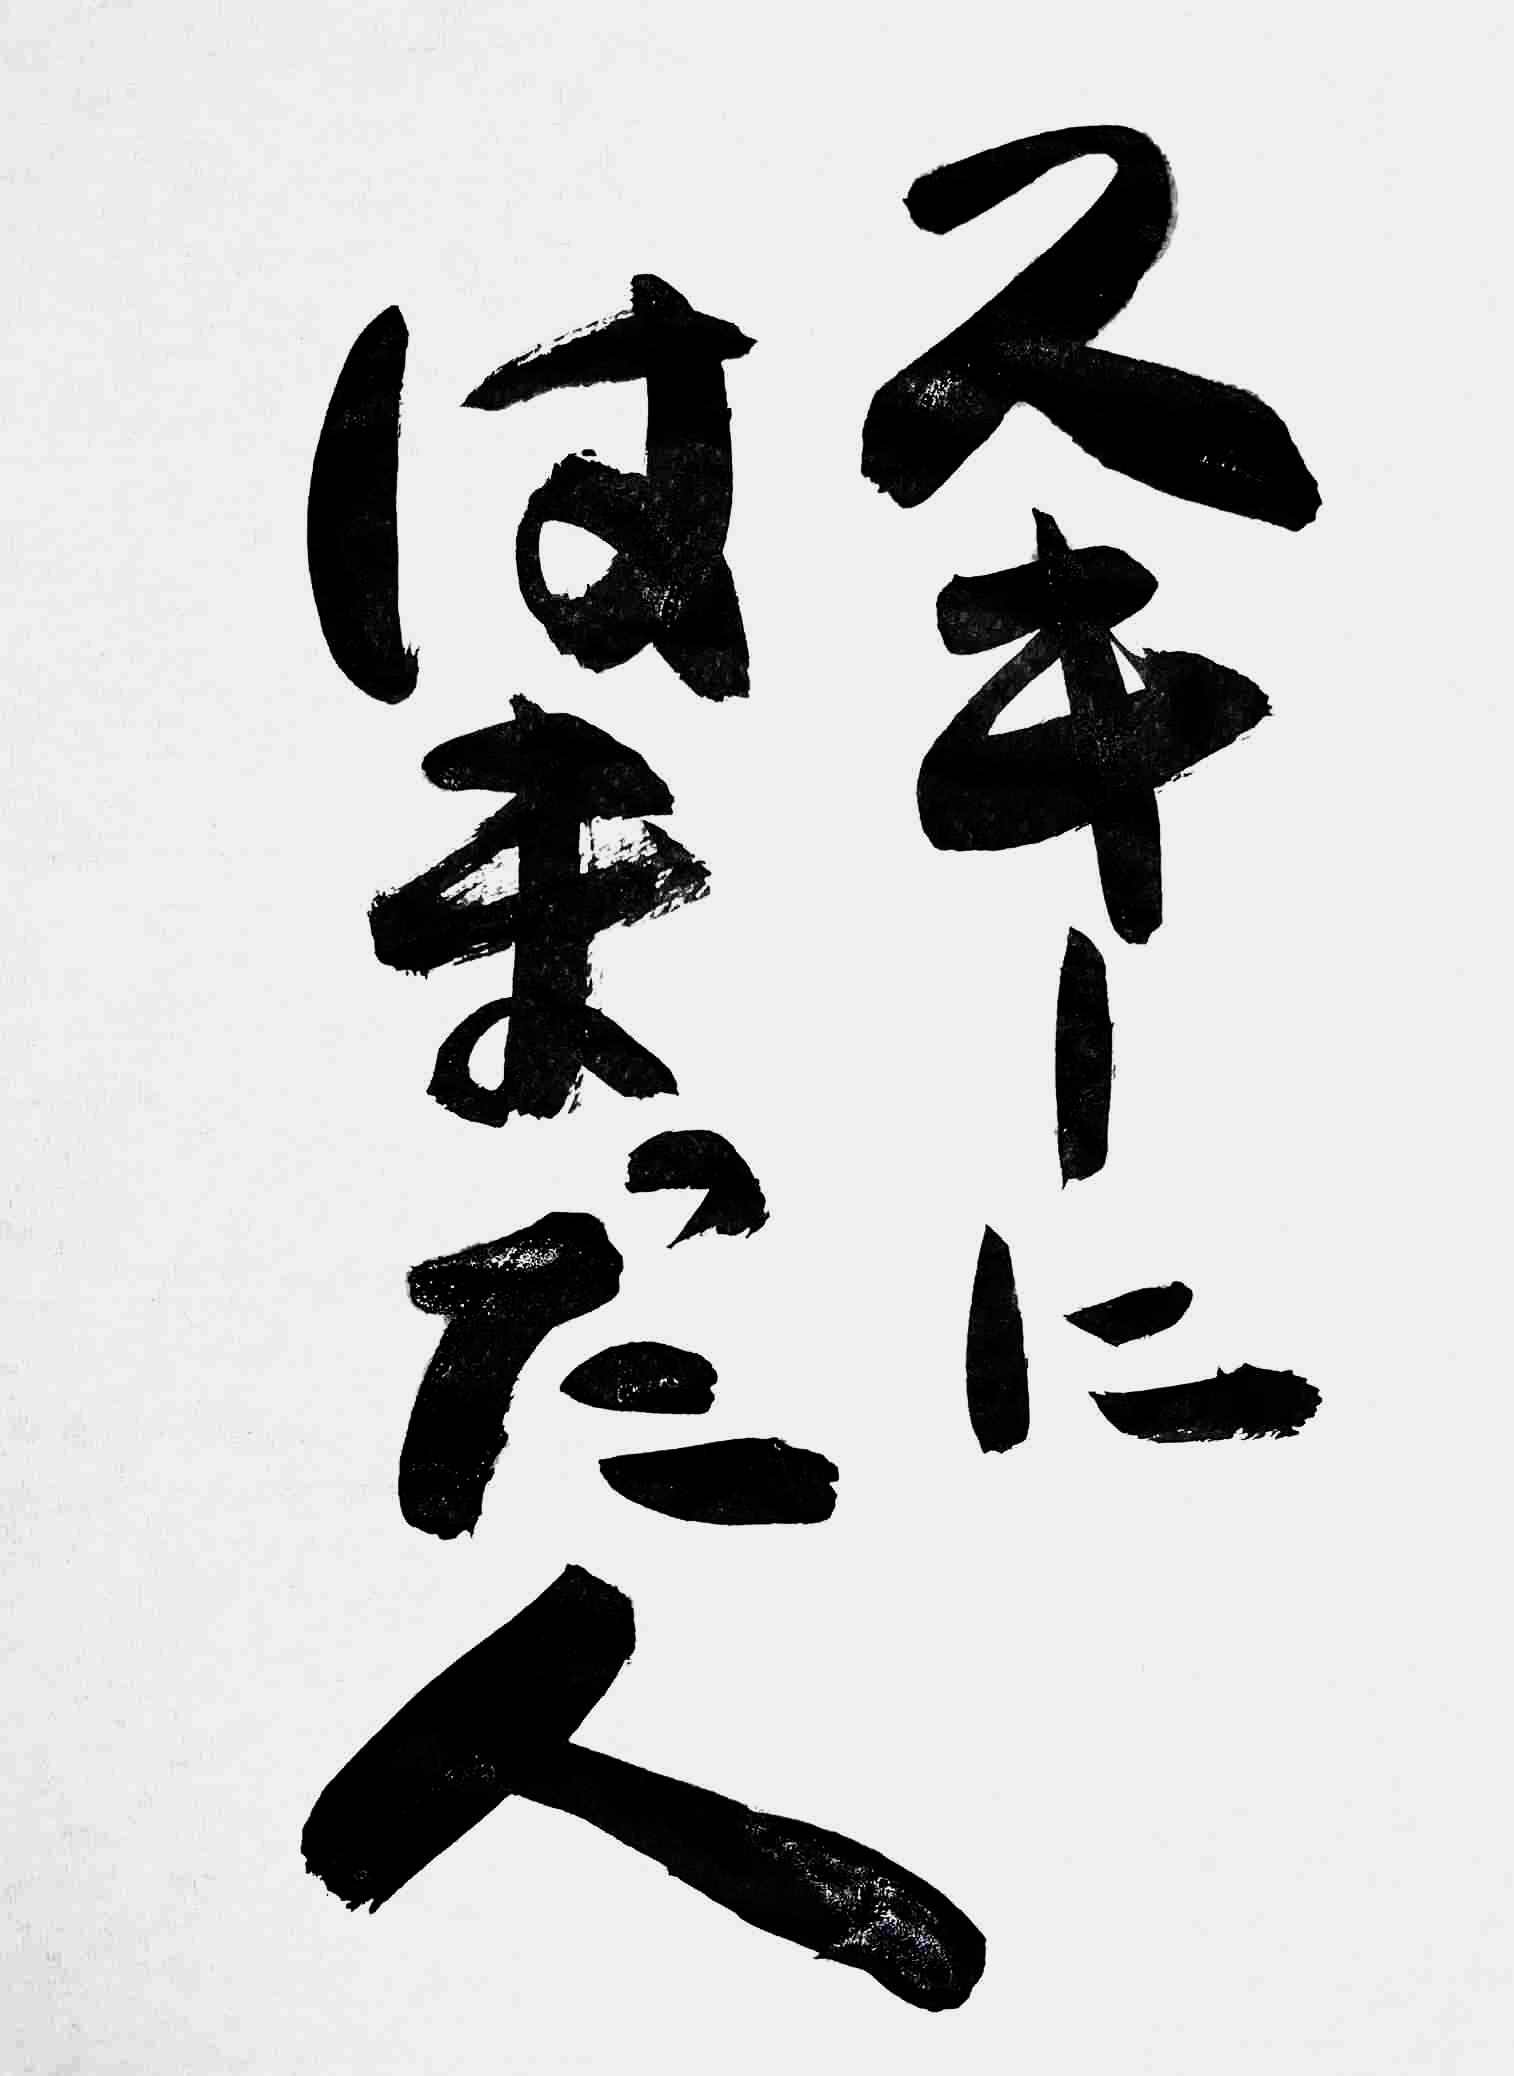 スキーに
はまった人